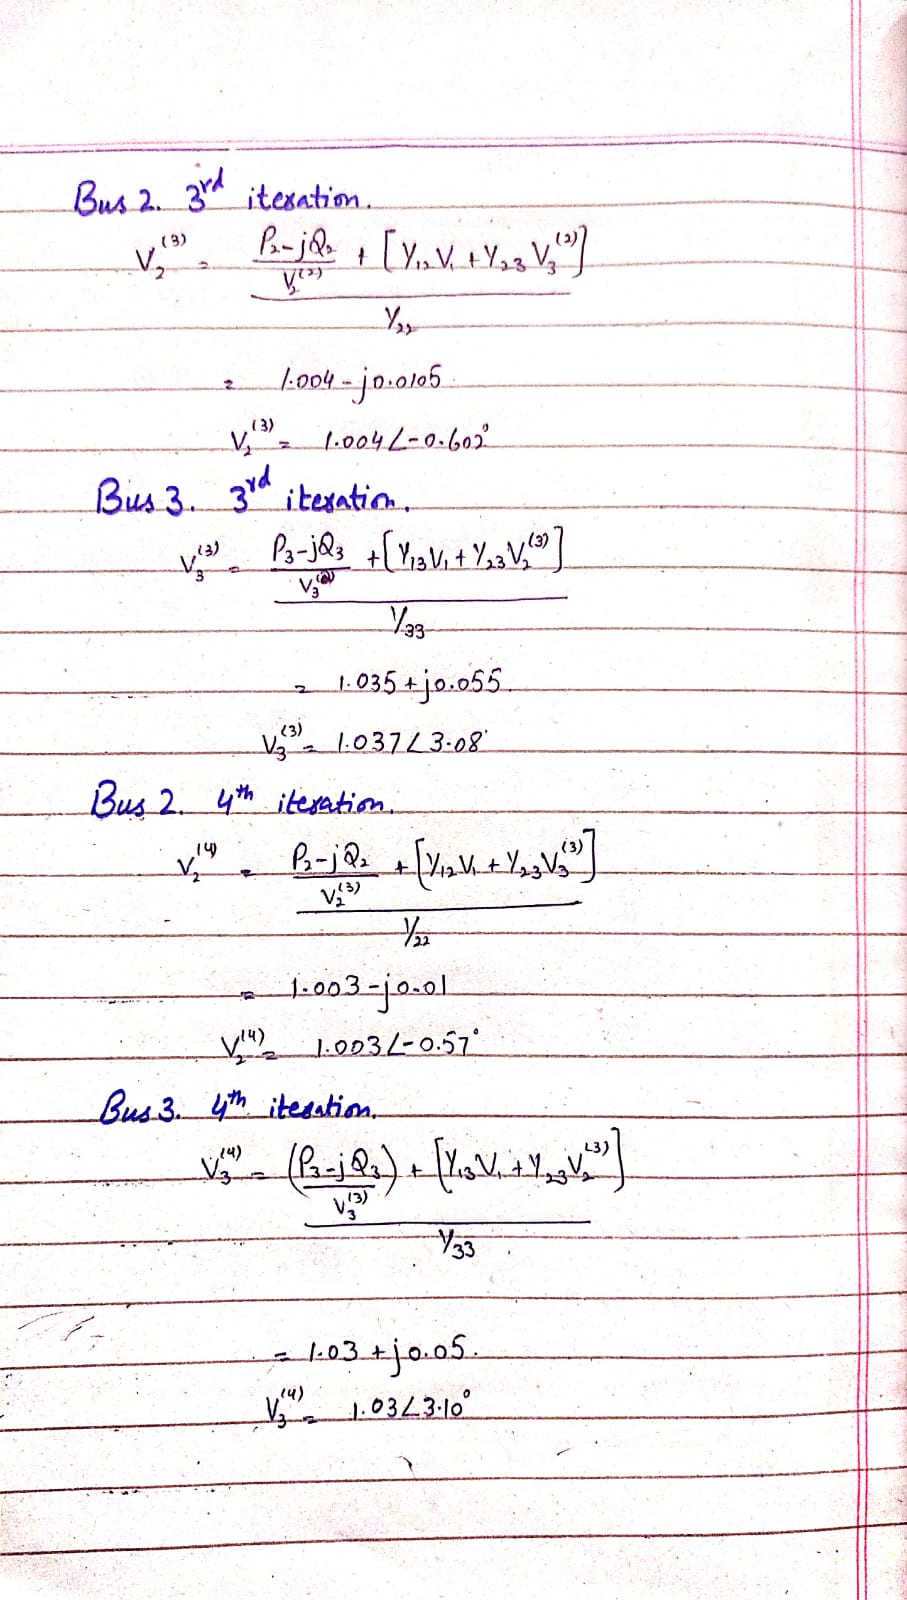 Bus 2. 3rd iteration.
V₂⁽³⁾ = P₂-jQ₂ / V₂⁽²⁾ + [Y₁₂V₁ + Y₂₃V₃⁽²⁾]
Y₂₂
= 1.004 - j0.0105
V₂⁽³⁾ = 1.004∠-0.602°
Bus 3. 3rd iteration.
V₃⁽³⁾ = P₃-jQ₃ / V₃⁽²⁾ + [Y₁₃V₁ + Y₂₃V₂⁽³⁾]
Y₃₃
= 1.035 + j0.055.
V₃⁽³⁾ = 1.037∠3.08°
Bus 2. 4th iteration.
V₂⁽⁴⁾ = P₂-jQ₂ / V₂⁽³⁾ + [Y₁₂V₁ + Y₂₃V₃⁽³⁾]
Y₂₂
= 1.003 - j0.01
V₂⁽⁴⁾ = 1.003∠-0.57°
Bus 3. 4th iteration.
V₃⁽⁴⁾ = (P₃-jQ₃) / V₃⁽³⁾ + [Y₁₃V₁ + Y₂₃V₂⁽³⁾]
Y₃₃
= 1.03 + j0.05.
V₃⁽⁴⁾ = 1.03∠3.10°